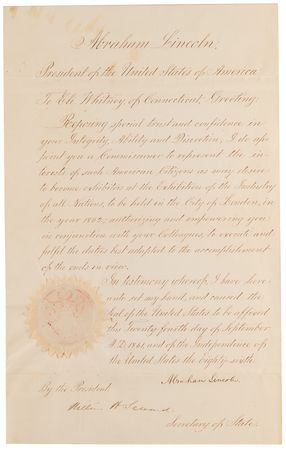 Abraham Lincoln,
President of the United States of America,
To Eli Whitney, of Connecticut, Greeting:
Reposing special trust and confidence in
your Integrity, Ability and Discretion, I do ap-
point you a Commissioner to represent the in-
terests of such American Citizens as may desire
to become exhibitors at the Exhibition of the Industry
of all Nations, to be held in the City of London, in
the year 1862, authorizing and empowering you
in conjunction with your Colleagues, to execute and
fulfil the duties best adapted to the accomplishment
of the ends in view.
In testimony whereof, I have here-
unto set my hand, and caused the
seal of the United States to be affixed
this Twenty fourth day of September
A.D. 1861, and of the Independence of
the United States the Eighty-sixth.
Abraham Lincoln
By the President
William H Seward
Secretary of State.